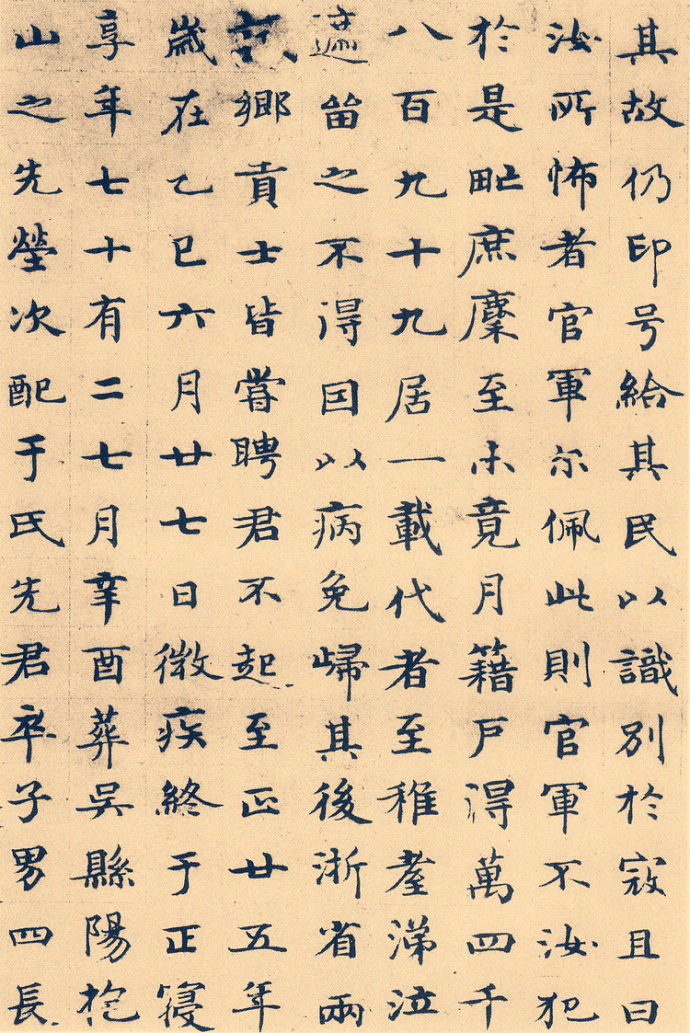 其故仍印号給其民以識別於寇且曰
汝所怖者官軍尓佩此則官軍不汝犯
於是甿庶麇至未竟月籍戶得萬四千
八百九十九居一載代者至稚耋涕泣
遮留之不得因以病免歸其後浙省兩
試鄉貢士皆嘗聘君不起至正廿五年
歲在乙巳六月廿七日微疾終于正寢
享年七十有二七月辛酉葬吳縣陽抱
山之先塋次配于氏先君卒子男四長